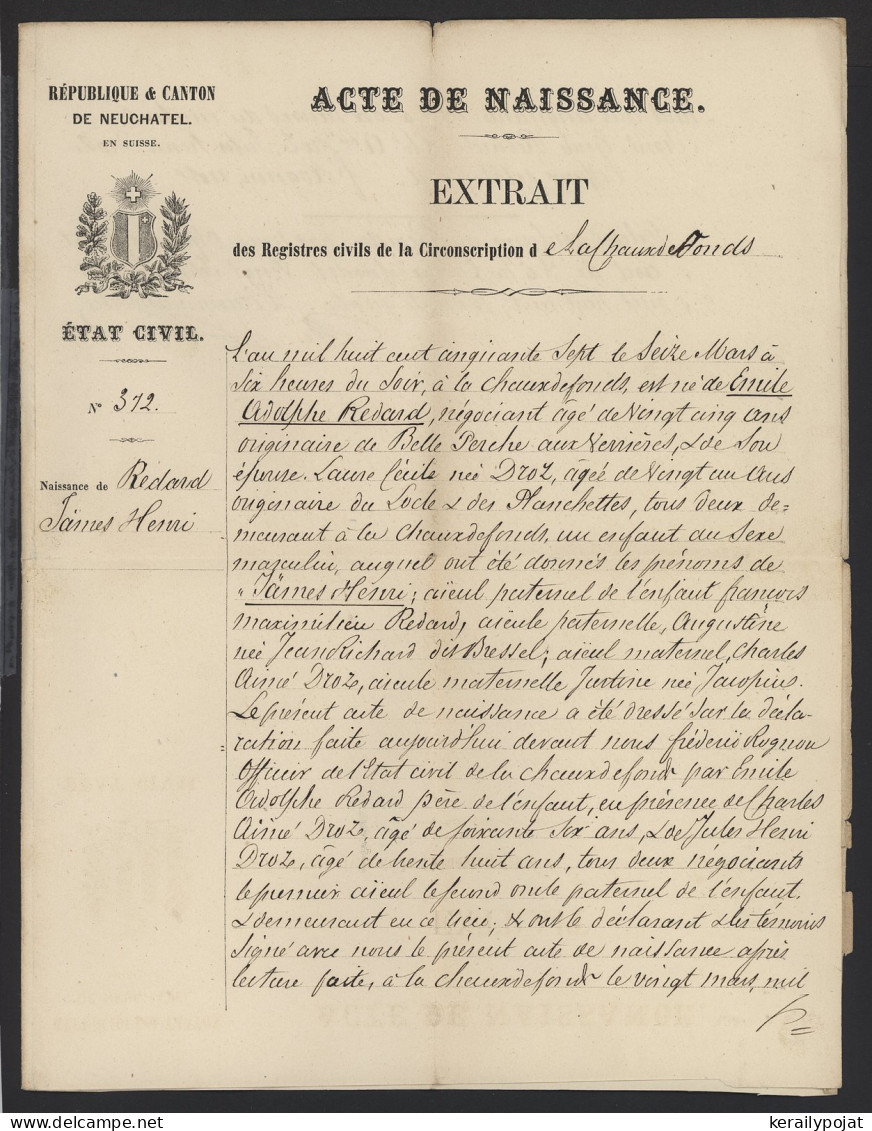 RÉPUBLIQUE & CANTON
DE NEUCHATEL.
EN SUISSE.
ÉTAT CIVIL.
N° 312.
Naissance de Redard
Jämes Henri
ACTE DE NAISSANCE.
EXTRAIT
des Registres civils de la Circonscription d e La Chaux de Fonds
L'an mil huit cent cinquante Sept le Seize Mars à
Six heures du Soir, à la Chauxdefonds, est né de Emile
Adolphe Redard, négociant âgé de Vingt cinq ans
originaire de Belle Perche aux Verrières, & de Son
épouse. Laure Cécile née Droz, âgée de Vingt un ans
originaire du Locle & des Planchettes, tous deux de=
meurant à la Chauxdefonds, un enfant du Sexe
masculin, auquel ont été donnés les prénoms de
"Jämes Henri; aïeul paternel de l'enfant françois
maximilien Redard, aïeule paternelle, Augustine
née JeanRichard dit Bressel; aïeul maternel, Charles
Aimé Droz, aïeule maternelle Justine née Jacopin.
Le présent acte de naissance a été dressé Sur la décla-
ration faite aujourd'hui devant nous fréderic Rognon
Officier de l'Etat civil de la Chauxdefonds par Emile
Adolphe Redard père de l'enfant, en présence de Charles
Aimé Droz, âgé de Soixante Six ans, & de Jules Henri
Droz, âgé de trente huit ans, tous deux négociants
le premier aïeul le Second oncle paternel de l'enfant.
& demeurant en ce lieu; & ont le déclarant & les témoins
Signé avec nous le présent acte de naissance après
lecture faite, à la Chauxdefonds le vingt mars, mil
kerailypojat.com